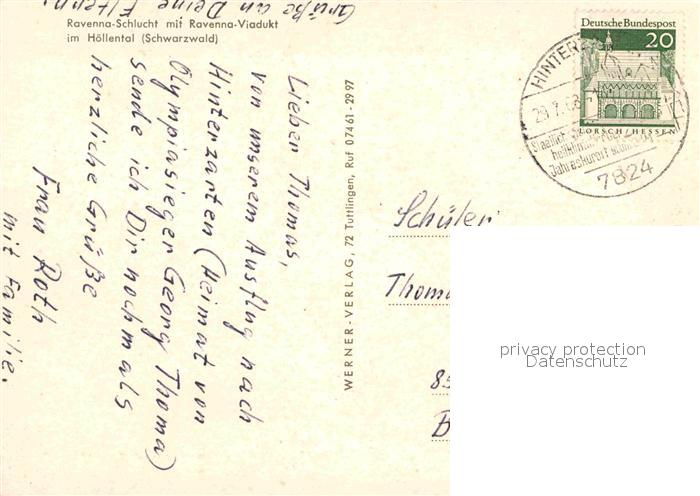 Grüße an Deine Eltern.
Ravenna-Schlucht mit Ravenna-Viadukt
im Höllental (Schwarzwald)
Lieber Thomas,
von unserem Ausflug nach
Hinterzarten (Heimat von
Olympiasieger Georg Thoma)
sende ich Dir nochmals
herzliche Grüße
Frau Roth
mit Familie.
WERNER-VERLAG, 72 Tuttlingen, Ruf 07461-2997
Deutsche Bundespost
20
LORSCH/HESSEN
HINTERZ
29.7.68
Jahreskurort
7824
Schüler
Thom
85
B
privacy protection
Datenschutz